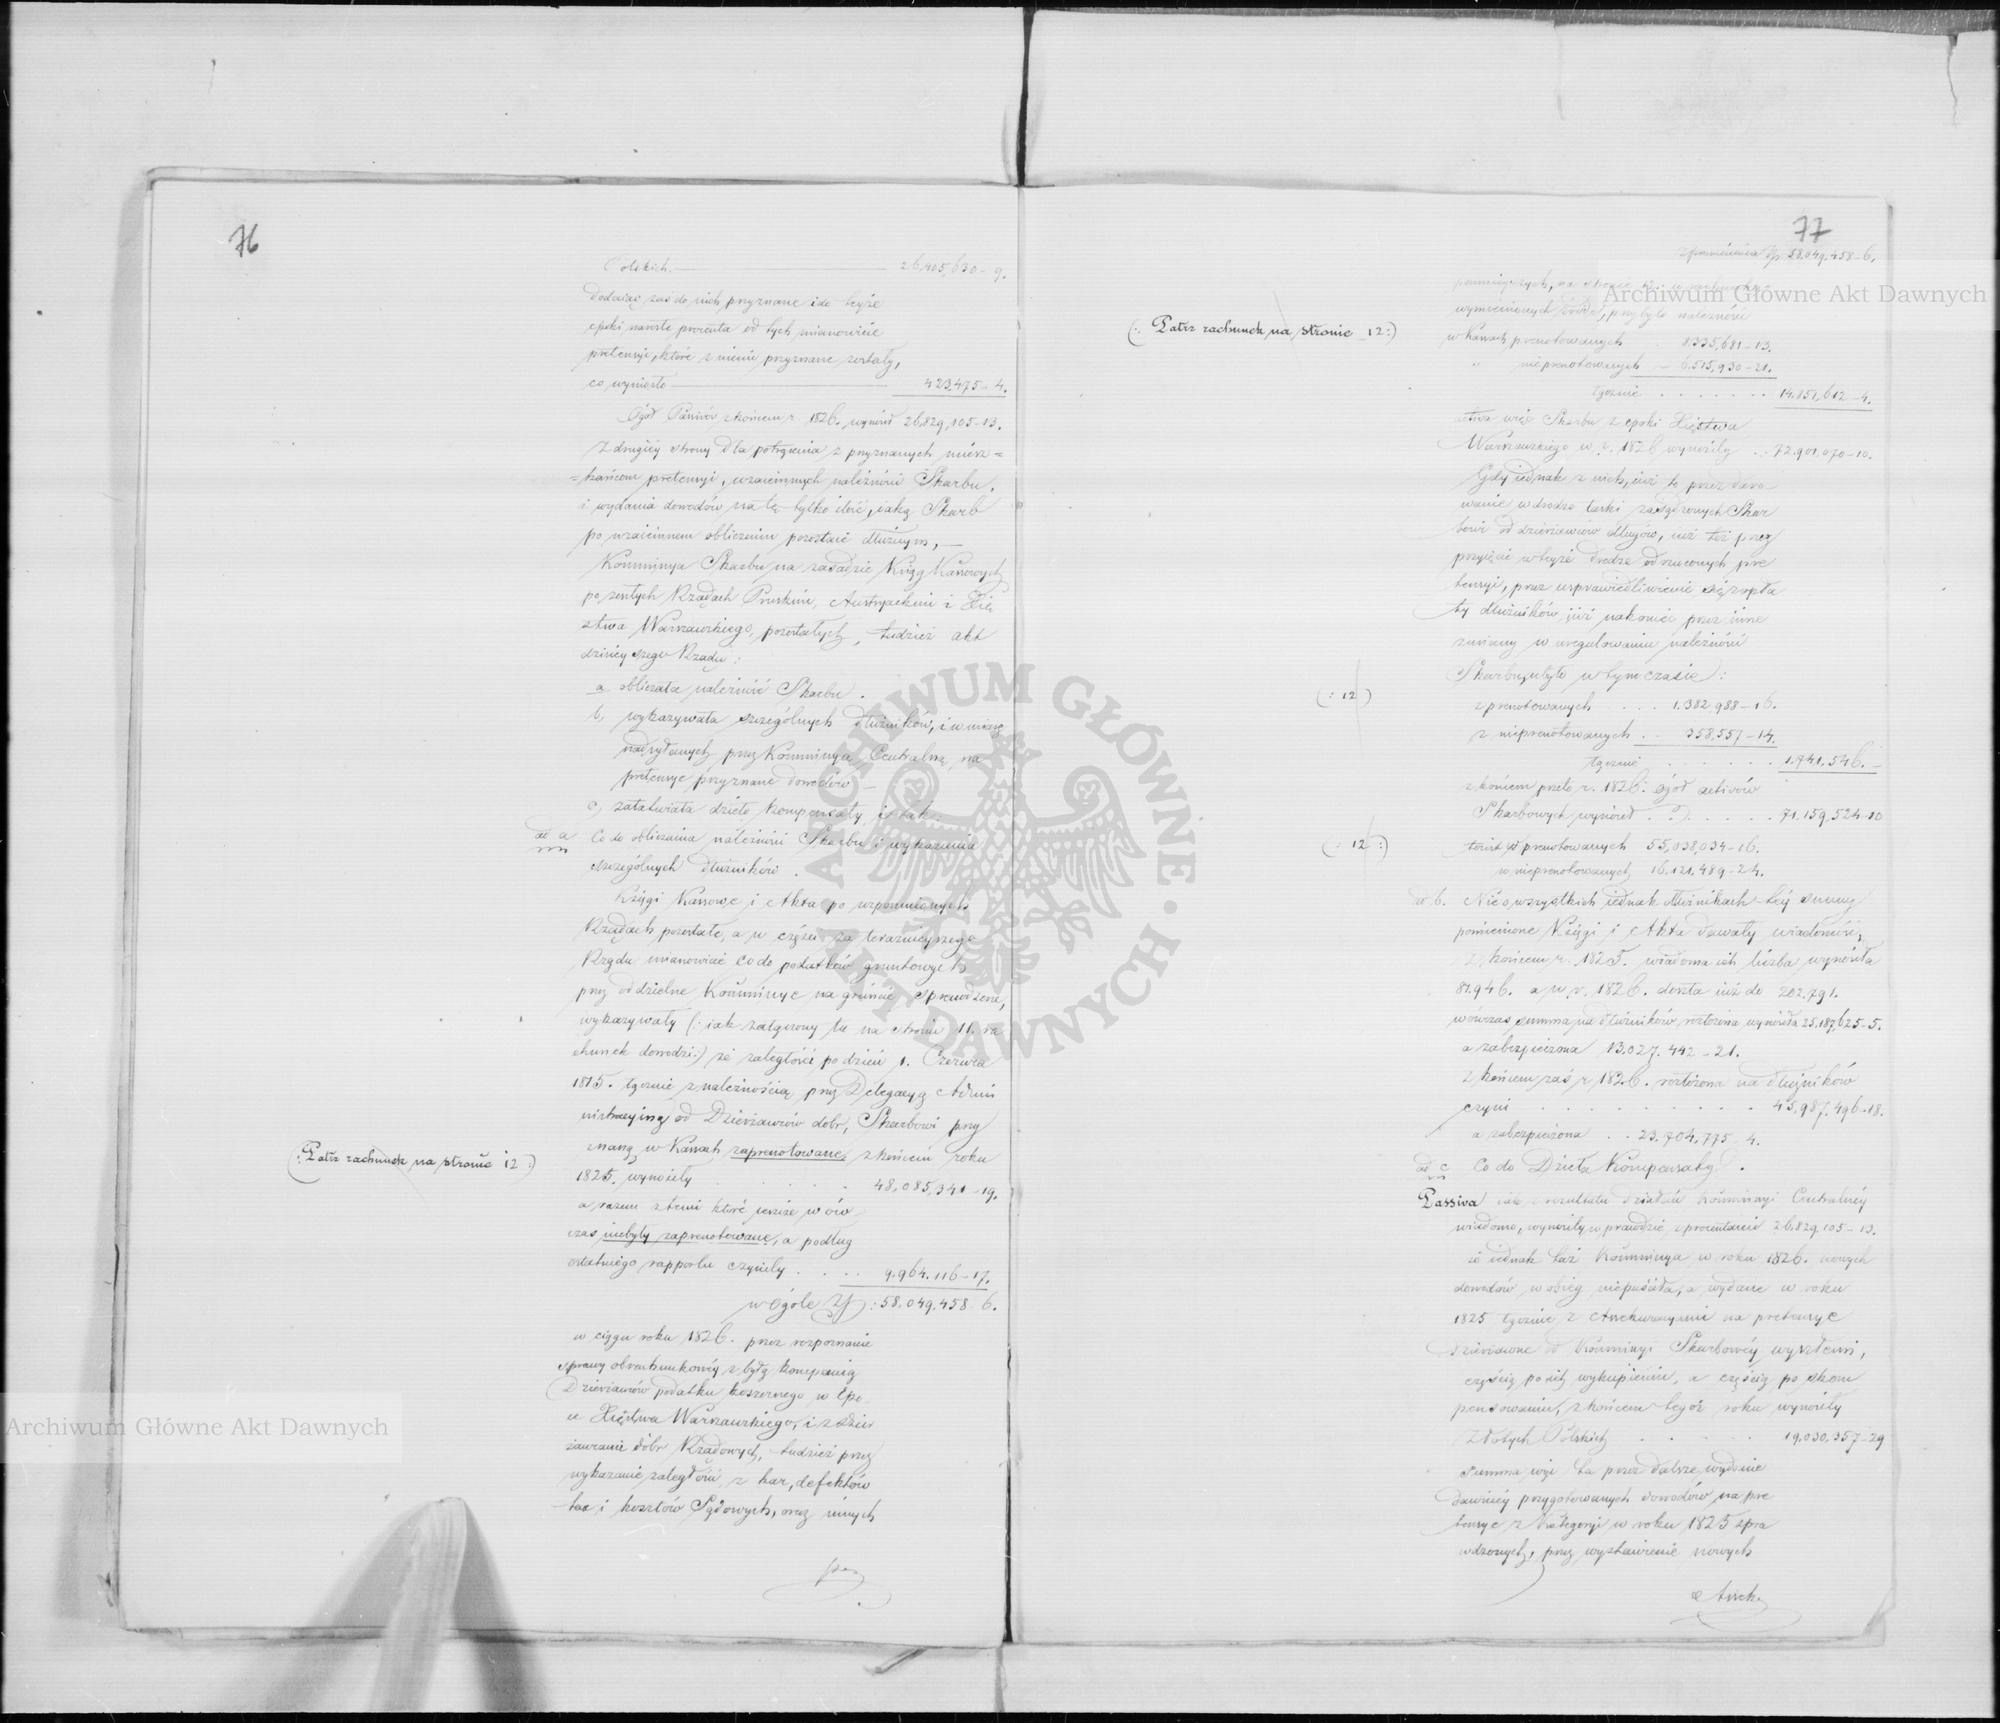 76
Polskich. 26,405,630-9.
Dodaiąc zaś do nich przyznane i do teyże
epoki narosłe procenta od tych mianowicie
pretensyi, które z niemi przyznane zostały,
co wyniosło 423,475-4.
Ogół Passivów z końcem r. 1826. wyniósł 26,829,105-13.
Z drugiéy strony dla potrącenia z przyznanych miesz=
=kańcom pretensyi, wzaiemnych należności Skarbu,
i wydania dowodów na tę tylko ilość, iaką Skarb
po wzaiemnem obliczeniu pozostaie dłużnym,
Kommissya Skarbu na zasadzie Kziąg Kassowych
po zeszłych Rządach Pruskim, Austryackim i Xię
stwa Warszawskiego, pozostałych, tudzież akt
dzisieyszego Rządu:
a obliczała należność Skarbu.
b, wykazywała szczególnych dłużników, i w miarę
nadsyłanych przez Kommissyą Centralną, na
pretensye przyznane dowodów
c, załatwiała dzieło kompensaty, i tak:
ad a Co do obliczenia należności Skarbu i wykazania
szczególnych dłużników.
Księgi Kassowe i Akta po wspomnionych
Rządach pozostałe, a w części za teraznieyszego
Rządu mianowicie co do podatków gruntowych
przez oddzielne Kommissye na gruncie sprawdzone,
wykazywały (: iak załączony tu na stronie 11. ra
chunek dowodzi:) że zaległości po dzień 1. Czerwca
1815. łącznie z należnością przez Delegacyą Admi
nistracyiną od Dzierżawców dobr, Skarbowi przy
znaną w Kassach zaprenotowane, z końcem roku
(: Patrz rachunek na stronie 12 :)
1825. wynosiły 48,085,341-19.
a razem z temi które ieszcze wów
czas niebyły zaprenotowane, a podług
ostatniego rapportu czyniły 9.964.116-17.
w Ogóle Zł: 58.049.458-6.
w ciągu roku 1826. przez rozpoznanie
sprawy obrachunkowéy z byłą kompanią
Dzierżawców podatku koszernego w Epo
ce Xięstwa Warszawskiego, i z dzier
żawcami dóbr Rządowych, tudzież przez
wykazanie zaległości z kar, defektów
tax i kosztów Sądowych, oraz innych
77
z przeniesienia Zł. 58.049.458-6.
(: Patrz rachunek na stronie 12 :)
wymienionych źródeł, przybyło należności
w Kassach prenotowanych 8.335,681-13.
" nieprenotowanych 6.515,930-21.
łącznie 14.851,612-4.
activa więc Skarbu z epoki Xięstwa
Warszawskiego w r. 1826 wynosiły 72.901,070-10.
Gdy iednak z nich, iuż to przez daro
wanie w drodze łaski zasądzonych Skar
bowi od dzierżawców długów, iuż też przez
przyięcie w teyże drodze odrzuconych pre
tensyi, przez usprawiedliwienie się z opła
ty dłużników, iuż nakoniec przez inne
zmiany w uregulowaniu należności
Skarbu, ubyło w tym czasie:
(: 12 :)
z prenotowanych 1.382,988-16.
z nieprenotowanych 358,557-14.
łącznie 1,741,546.-
z końcem przeto r. 1826. ogół activów
Skarbowych wyniósł 71.159,524-10
(: 12 :)
to iest w prenotowanych 55,038,034-16.
w nieprenotowanych 16.121.489-24.
ad b. Nie o wszystkich iednak dłużnikach téy summy
pomienione Księgi i Akta dawały wiadomość,
z końcem r. 1825. wiadoma ich liczba wynosiła
81.946. a w r. 1826. doszła iuż do 202.791.
wówczas summa na dłużników rozłożona wynosiła 25,187,625-5.
a zabezpieczona 13.027.442-21.
z końcem zaś r. 1826. rozłożona na dłużników
czyni 45,987,496-18.
a zabezpieczona 23.704,775-4.
ad c Co do Dzieła Kompensaty.
Passiva iak z rezultatu działań Kommissyi Centralnéy
wiadomo, wynosiły wprawdzie z procentami 26,829,105-13.
że iednak taż Kommissya w roku 1826. nowych
dowodów w obieg niepuściła, a wydane w roku
1825 łącznie z Assekuracyami na pretensye
dzierżawne od Kommissyi Skarbowéy wyszłemi,
częścią po ich wykupieniu, a częścią po skom
pensowaniu, z końcem tegoż roku wynosiły
Złotych Polskich 19.030.357-29
summa więc ta przez dalsze wydanie
dawniéy przygotowanych dowodów na pre
tensye z Kategoryi w roku 1825 spra
wdzonych, przez wystawienie nowych
Assek
Archiwum Główne Akt Dawnych
Archiwum Główne Akt Dawnych
ARCHIWUM GŁÓWNE AKT DAWNYCH